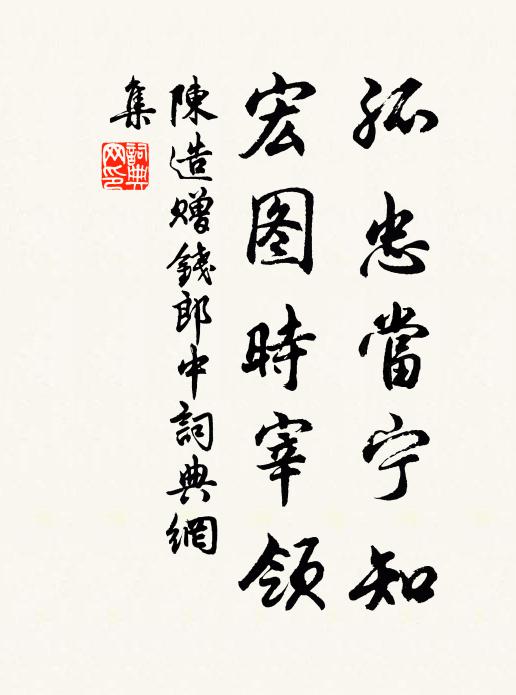 孤忠當宁知
宏图時宰領
陳造贈錢郎中詞典網
集
詞典网印